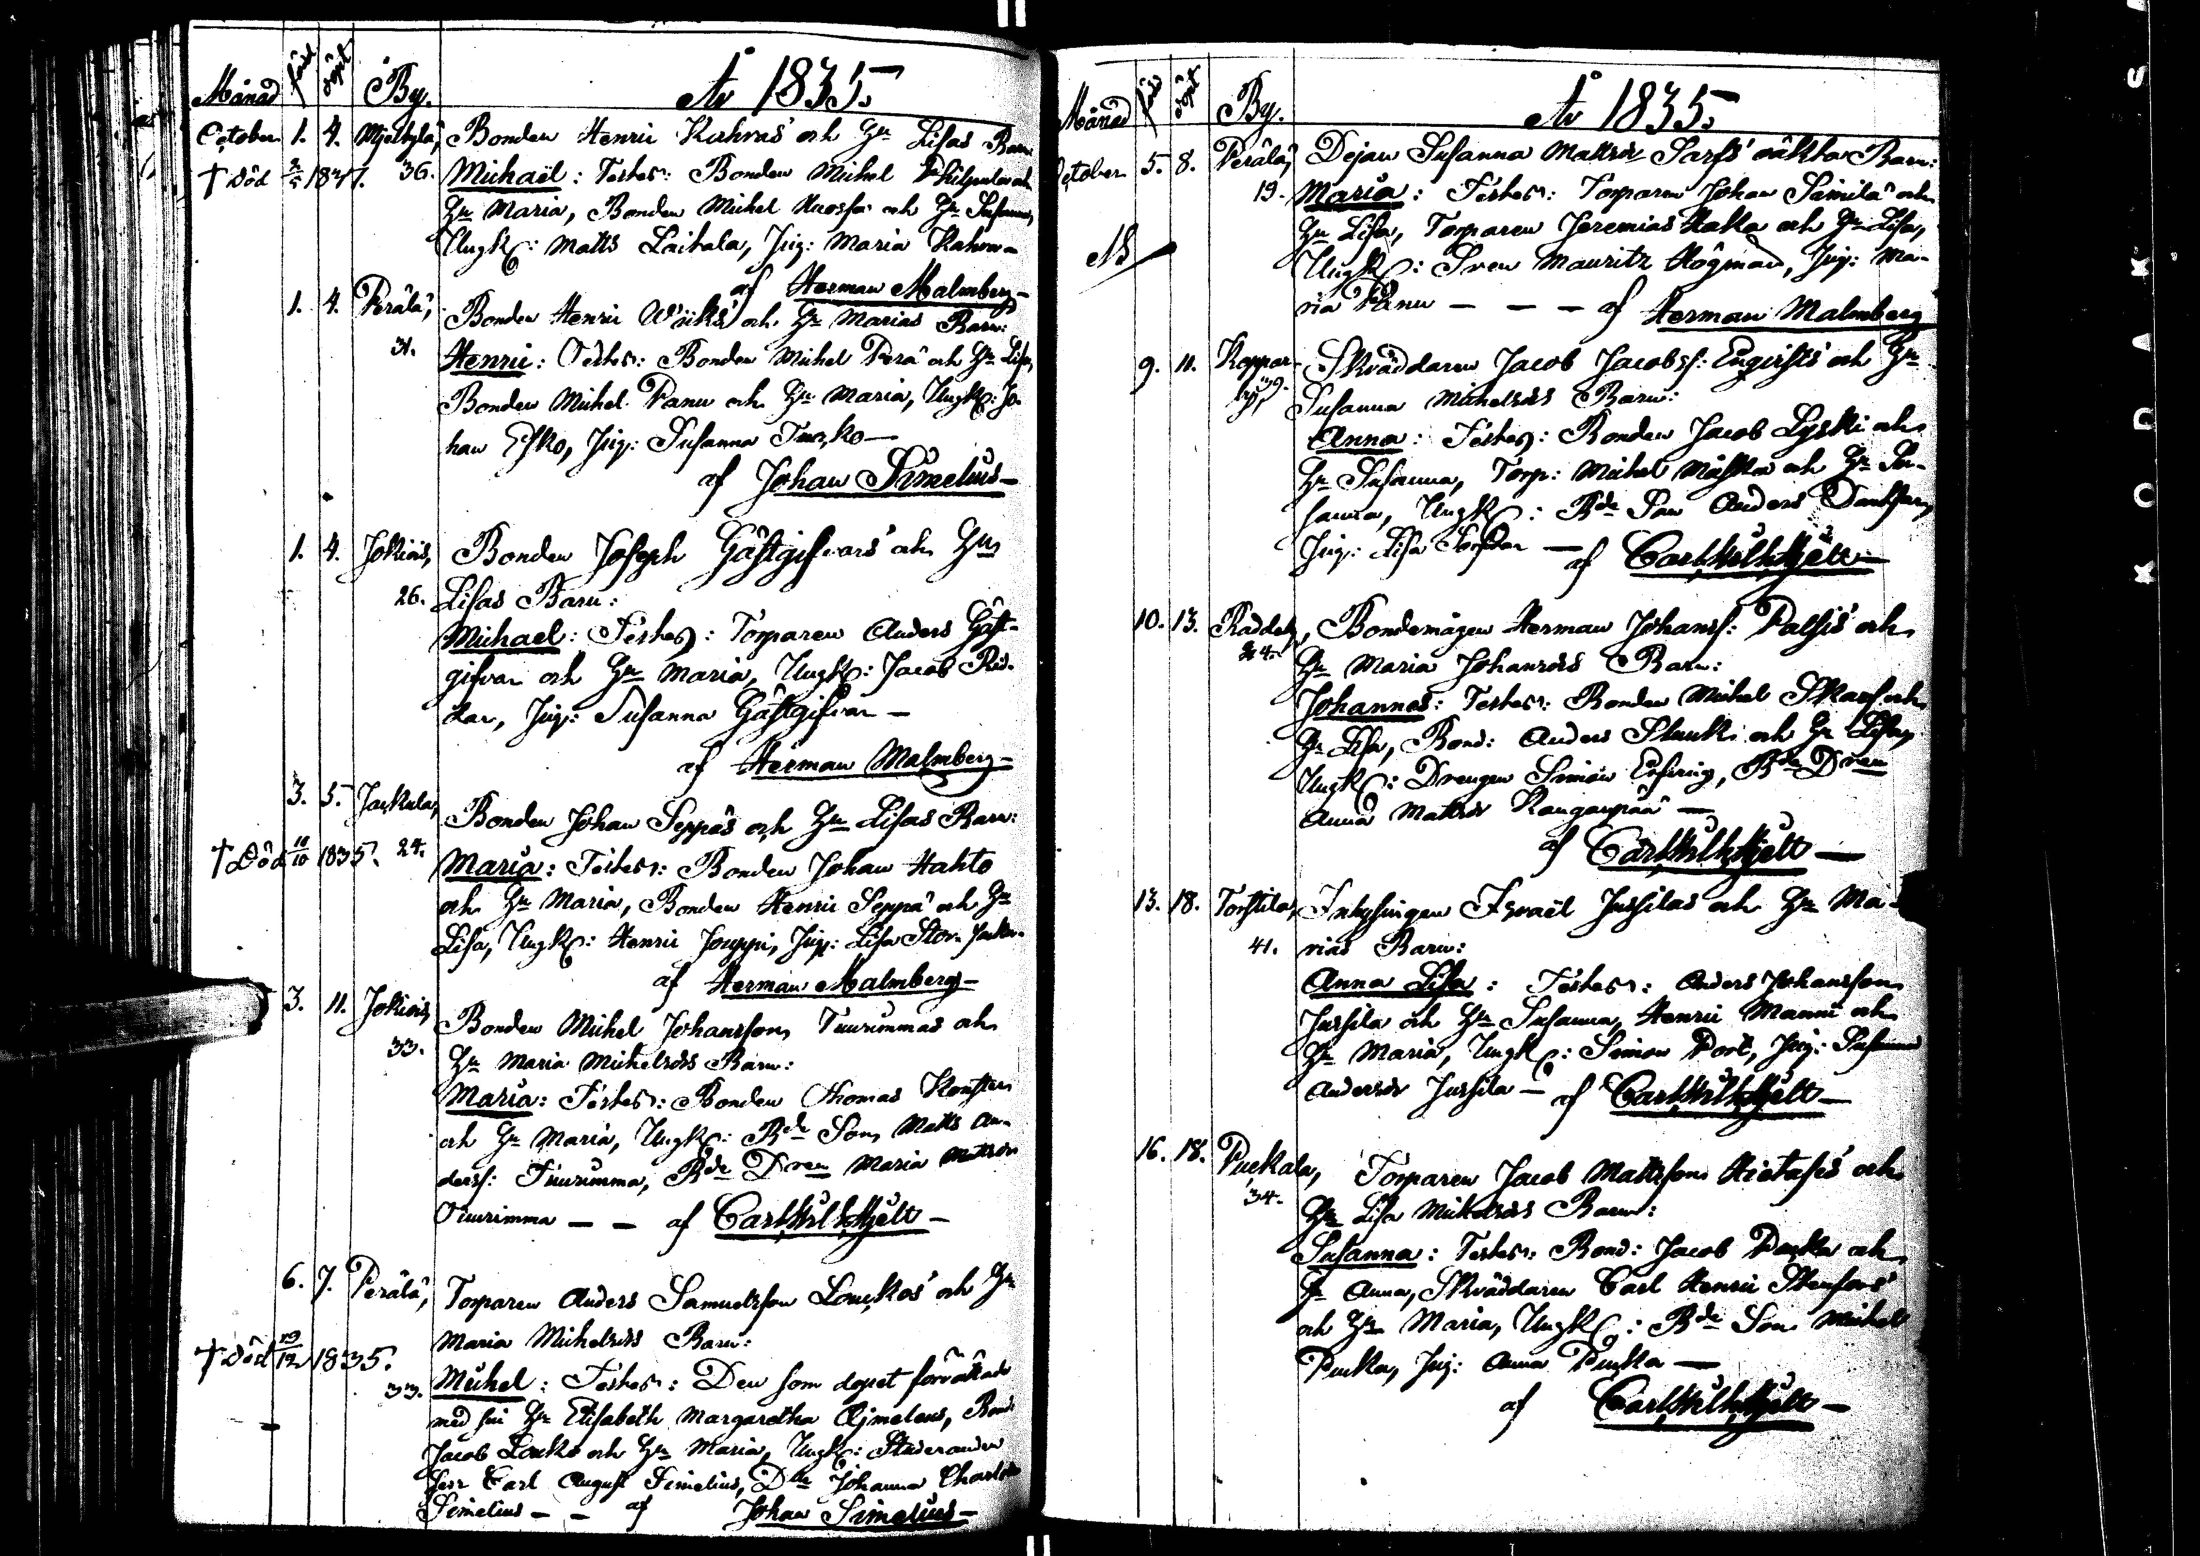 Månad född döpt By. År 1835.
October 1. 4. Mjelkylä, Bonden Henric Kuhnas och Hu Lisas Barn
† död 2/5 1837. 36. Michaël: Testes: Bonden Michel och
Hu Maria, Bonden Michel och Hu Susanna,
UngK: Matts Laitala, Pig: Maria
af Herman Malmberg
1. 4. Perälä, Bonden Henric Wiiks och Hu Marias Barn:
31. Henric: Testes: Bonden Michel Perä och Hu Lisa,
Bonden Michel Panu och Hu Maria, UngK: Jo-
han Esko, Pig: Susanna
af Johan Simelius
1. 4. Jokiois, Bonden Joseph Gästgifvars och Hus
26. Lisas Barn:
Michael: Testes: Torparen Anders Gäst-
gifvar och Hu Maria, UngK: Jacob Rid-
dar, Pig: Susanna Gästgifvar —
af Herman Malmberg
3. 5. Jackula, Bonden Johan Seppäs och Hu Lisas Barn:
† Död 10/10 1835. 24. Maria: Testes: Bonden Johan Hahto
och Hu Maria, Bonden Henric Seppä och Hu
Lisa, UngK: Henric Jouppi, Pig: Lisa Stor-
af Herman Malmberg
3. 11. Jokiois, Bonden Michel Johansson Tuurimmas och
33. Hu Maria Michelsdrs Barn:
Maria: Testes: Bonden Thomas
och Hu Maria, UngK: Bde Son Matts An-
derss: Tuurimma, Bde Dren Maria Mattsdr
Tuurimma — — af Carl Wilh Hjelt —
6. 7. Perälä, Torparen Anders Samuelsson Louckos och Hu
Maria Michelsdrs Barn:
† död 19/12 1835.
33. Michel: Testes: Den som dopet förrättade
med sin Hu Elisabeth Margaretha Ajmelæus, Bond:
Jacob Loucko och Hu Maria, UngK: Studeranden
Herr Carl August Simelius, Dlle Johanna Charlotta
Simelius — — af Johan Simelius —
Månad född döpt By. År 1835.
October 5. 8. Perälä, Dejan Susanna Mattsdr Sarfs oäkta Barn:
19. Maria: Testes: Torparen Johan Simila och
Hu Lisa, Torparen Jeremias Kakko och Hu Lisa,
UngK: Sven Mauritz Högman, Pig: Ma-
ria Panu — — — af Herman Malmberg
9. 11. Koppar- Skräddaren Jacob Jacobss: Engvists och Hu
by, 29. Susanna Michelsdrs Barn:
Anna: Testes: Bonden Jacob Lyski och
Hu Susanna, Torp: Michel och Hu Su-
sanna, UngK: Bde Son Anders
Pig: Lisa — af Carl Wilh Hjelt —
10. 13. Raddala, Bondemågen Herman Johanss: Palsis och
24. Hu Maria Johansdrs Barn:
Johannes: Testes: Bonden Michel Skarf och
Hu Lisa, Bond: Anders och Hu Lisa,
UngK: Drengen Simon, Bde Dren
Anna Mattsdr Kangaspää —
af Carl Wilh Hjelt —
13. 18. Torstila, Inhysingen Israël Jussilas och Hu Ma-
41. rias Barn:
Anna Lisa: Testes: Anders Johansson
Jussila och Hu Susanna, Henric Manni och
Hu Maria, UngK: Simon Port, Pig: Susanna
Andersdr Jussila — af Carl Wilh Hjelt —
16. 18. Puckala, Torparen Jacob Mattsson Hietasis och
34. Hu Lisa Michelsdrs Barn:
Susanna: Testes: Bond: Jacob Pucka och
Hu Anna, Skräddaren Carl Henric Stenfors
och Hu Maria, UngK: Bde Son Michel
Pucka, Pig: Anna Pucka —
af Carl Wilh Hjelt —